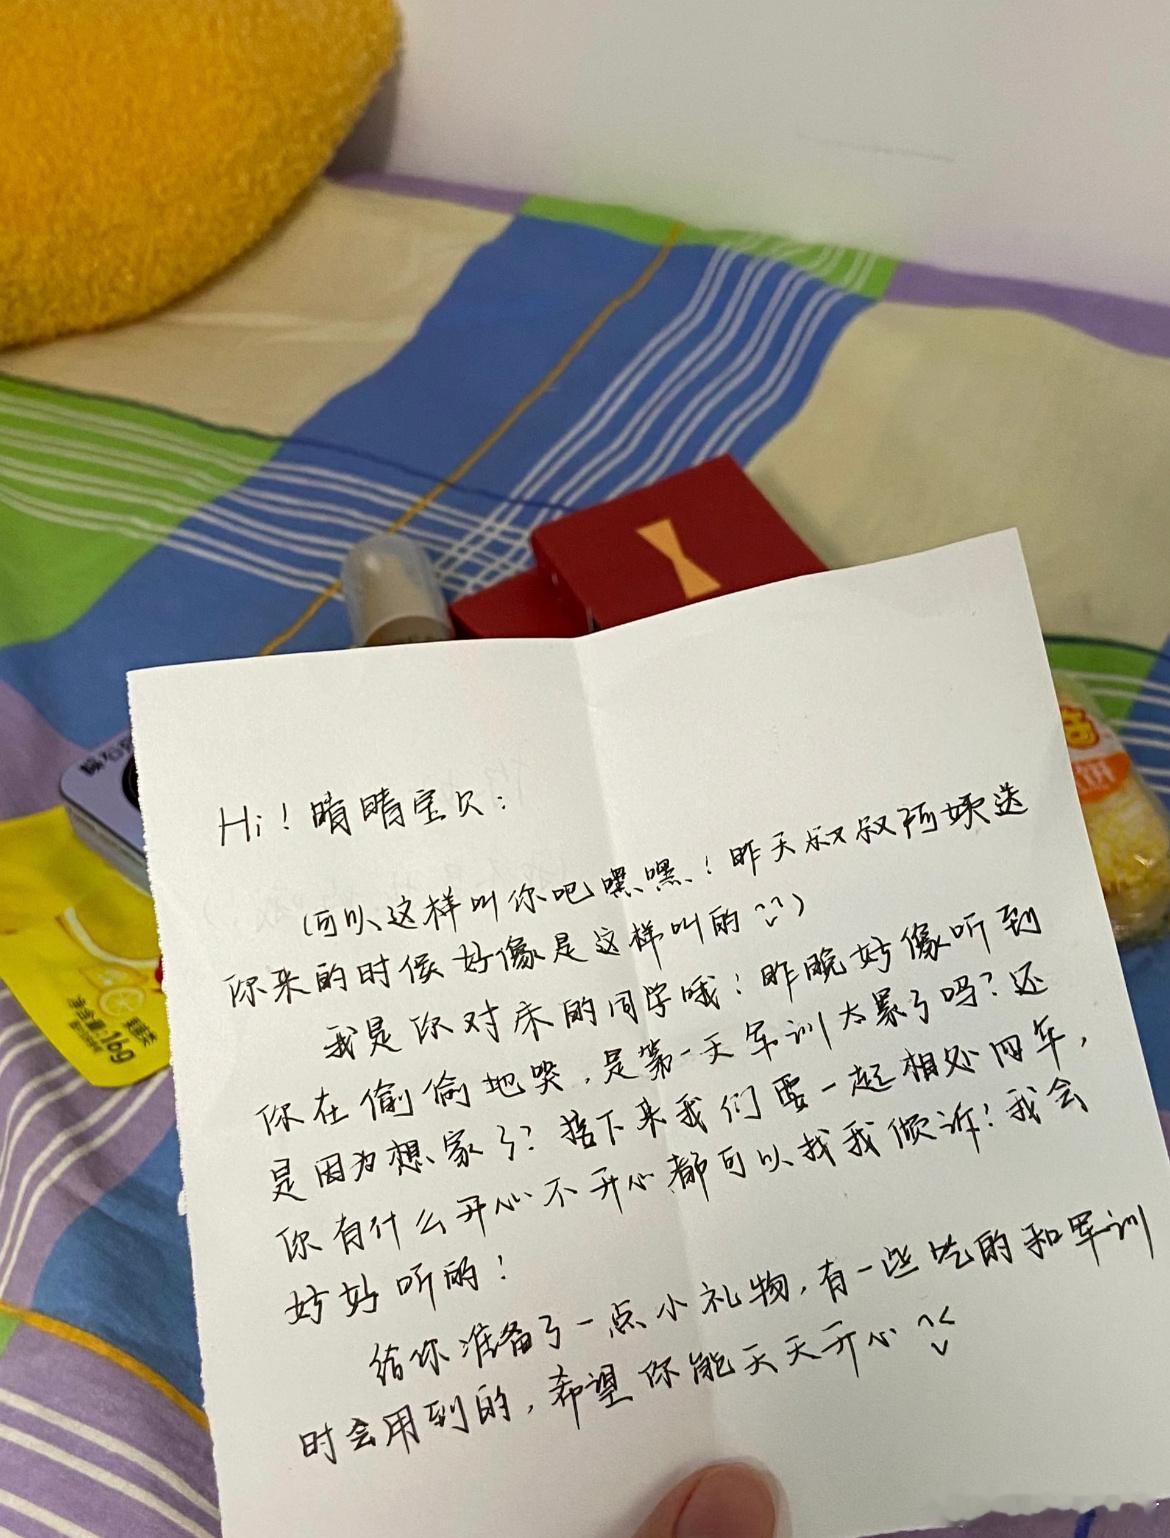 Hi！晴晴宝贝：
（可以这样叫你吧嘿嘿！昨天叔叔阿姨送
你来的时候好像是这样叫的）
我是你对床的同学哦！昨晚好像听到
你在偷偷地哭，是第一天军训太累了吗？还
是因为想家了？接下来我们要一起相处四年，
你有什么开心不开心都可以找我倾诉！我会
好好听的！
给你准备了一点小礼物，有一些吃的和军训
时会用到的，希望你能天天开心
净含量:16g